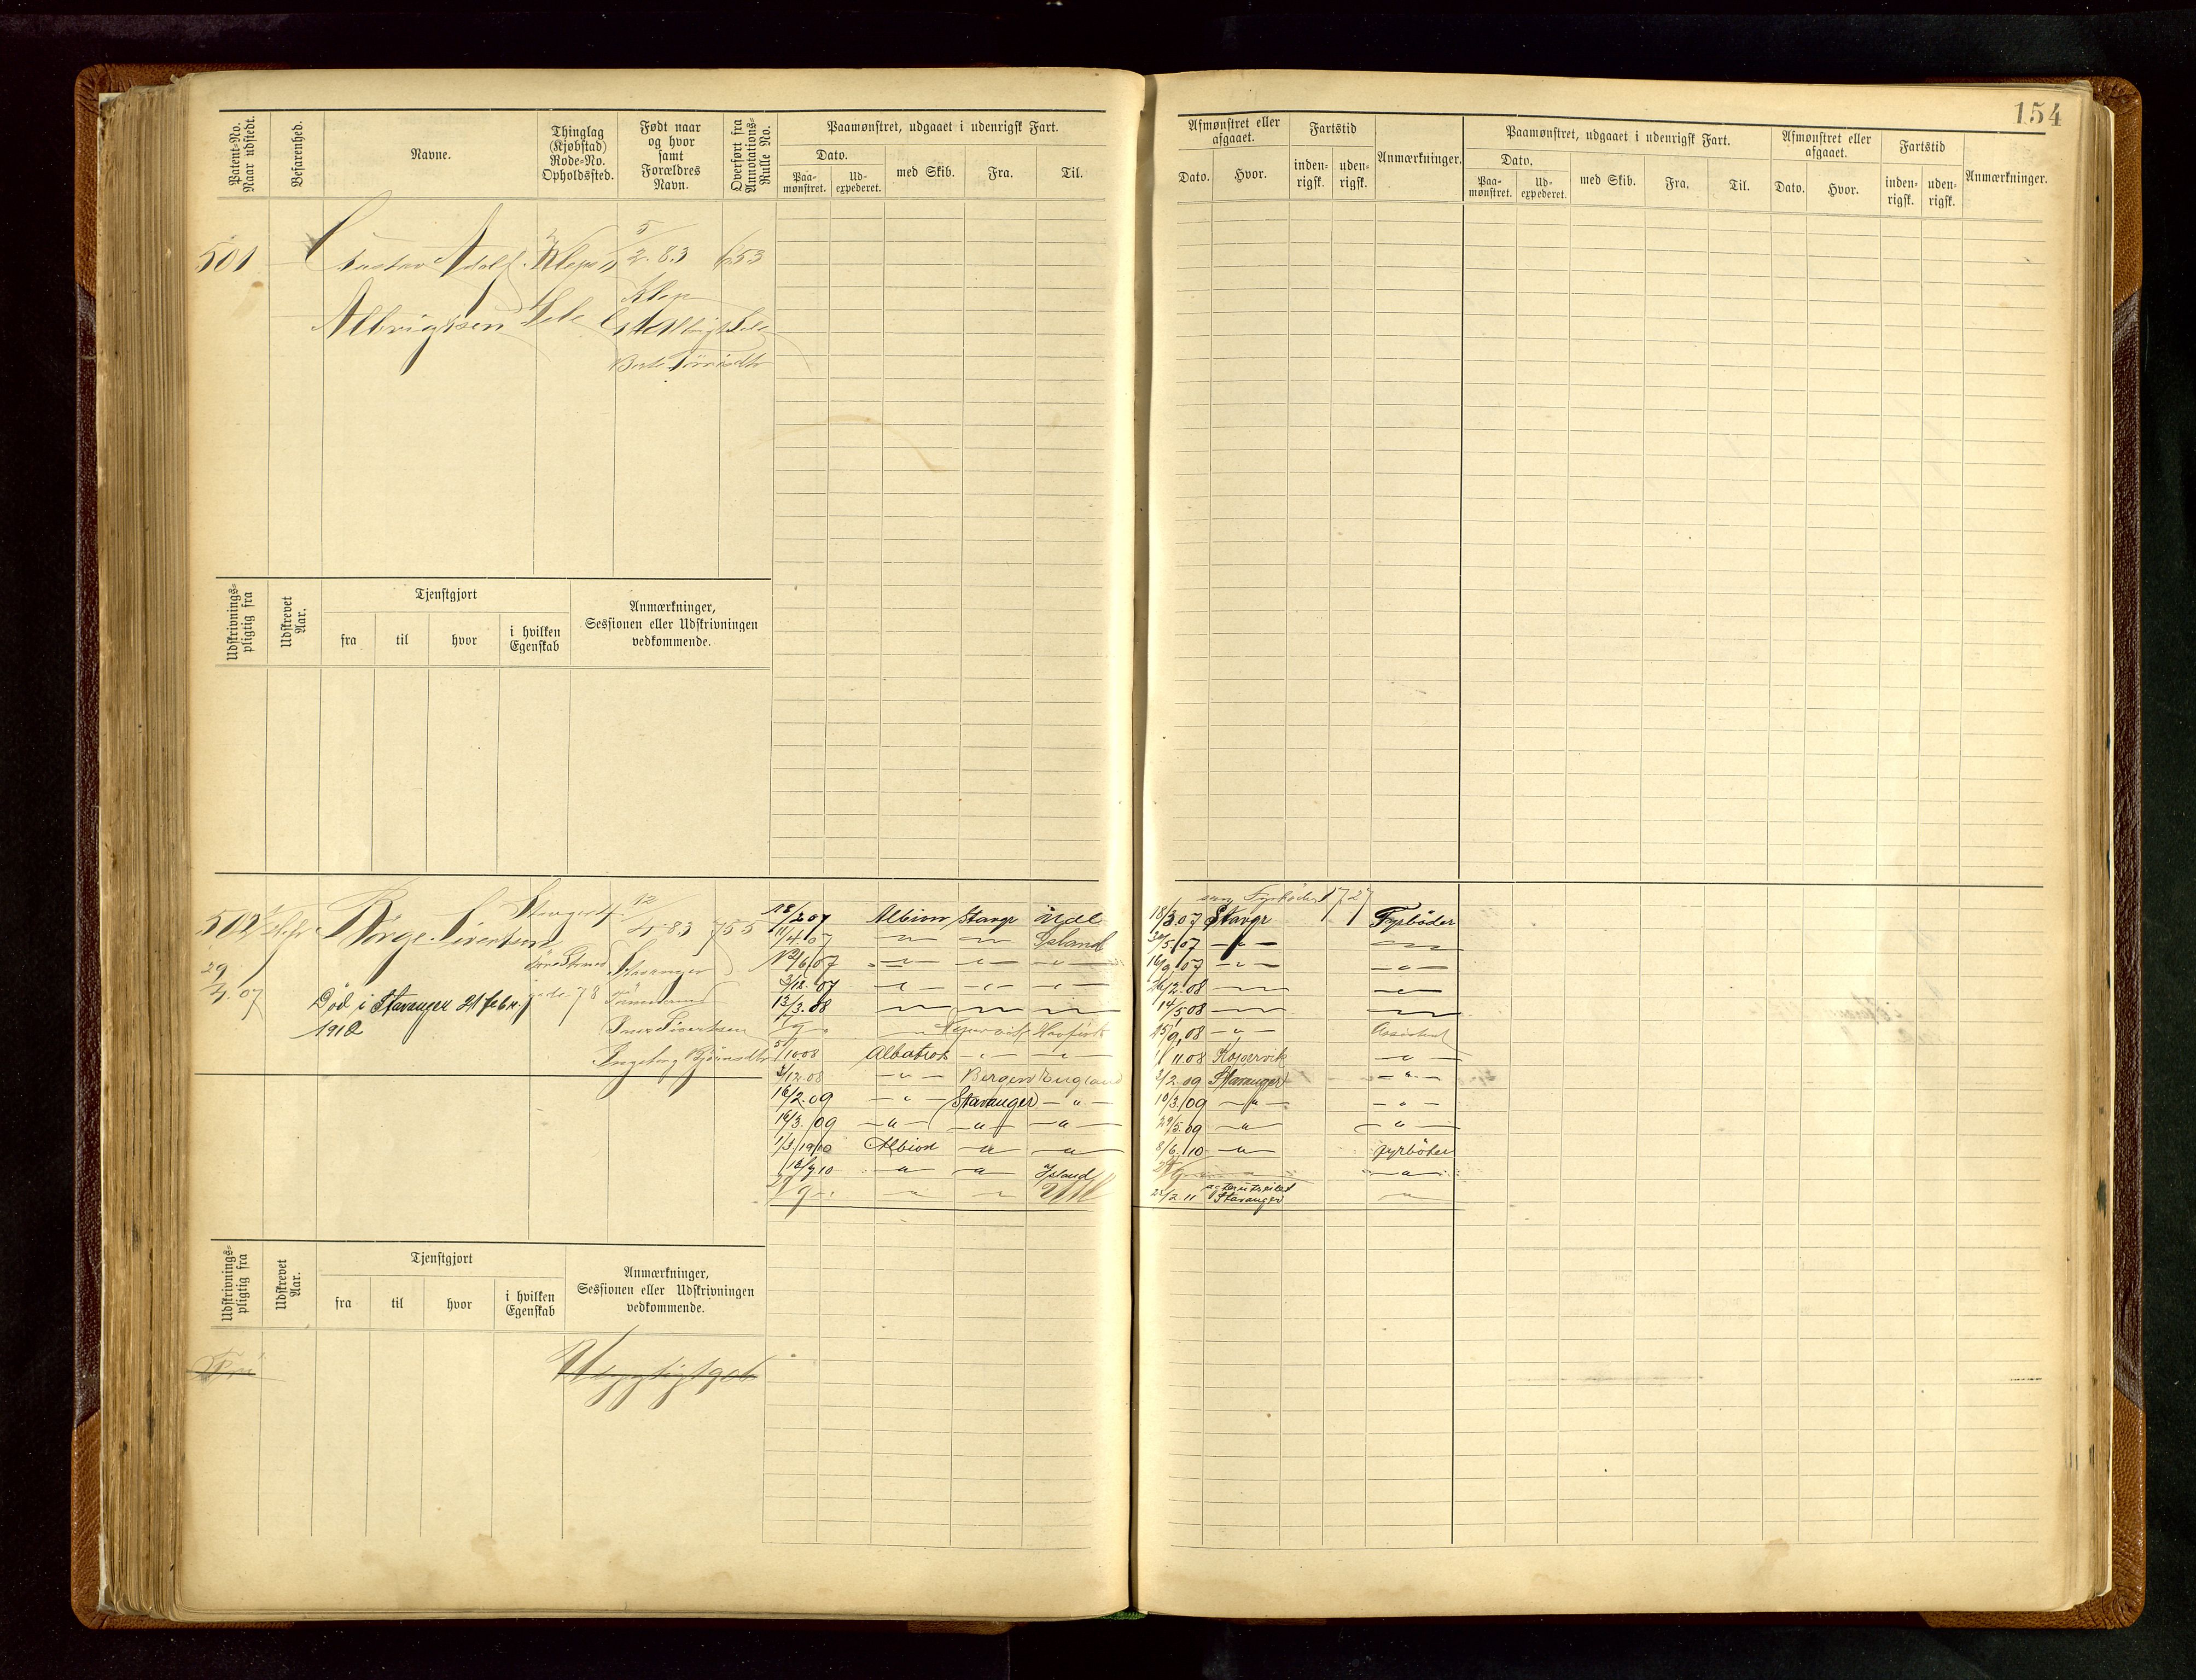 154
Patent-No. Naar udstedt.
Befarenhed.
Navne.
Thinglag (Kjøbstad) Rode-No. Opholdssted.
Født naar og hvor samt Forældres Navn.
Overført fra Annotations-Rulle No.
Paamønstret, udgaaet i udenrigsk Fart.
Dato.
Paa-mønstret.
Ud-expederet.
med Skib.
Fra.
Til.
Afmønstret eller afgaaet.
Dato.
Hvor.
Fartstid
inden-rigsk.
uden-rigsk.
Anmærkninger.
Paamønstret, udgaaet i udenrigsk Fart.
Dato.
Paa-mønstret.
Ud-expederet.
med Skib.
Fra.
Til.
Afmønstret eller afgaaet.
Dato.
Hvor.
Fartstid
inden-rigsk.
uden-rigsk.
Anmærkninger.
501 Gustav Adolf Klep 5/2 83 653
Albrigtsen Sele Klep
Udskrivnings-pligtig fra
Udskrevet Aar.
Tjenstgjort
fra
til
hvor
i hvilken Egenskab
Anmærkninger, Sessionen eller Udskrivningen vedkommende.
502 Börge Sivertsen 12/4 83 755
29/4 07 78 Stavanger
Død i Stavanger 21 febr. 1912
Sivertsen
Ingeborg
Fyrbøder 1727
18/2 07 Albion Stavgr 18/3 07 Stavgr Fyrbøder
11/4 07 — — Island 30/5 07 — —
12/6 07 — — — 16/9 07 — —
3/12 07 — — — 26/2 08 — —
13/3 08 — — — 14/5 08 — —
Kopervik 25/9 08 — Assistent
5/10 08 Albatros — — 1/11 08 Kopervik —
3/12 08 — Bergen England 3/2 09 Stavanger —
16/2 09 — Stavanger — 10/3 09 — —
16/3 09 — — — 29/5 09 — —
1/3 1910 Albion — — 8/6 10 — fyrbøder
18/7 10 — — Island
22/2 11 Stavanger —
Udskrivnings-pligtig fra
Udskrevet Aar.
Tjenstgjort
fra
til
hvor
i hvilken Egenskab
Anmærkninger, Sessionen eller Udskrivningen vedkommende.